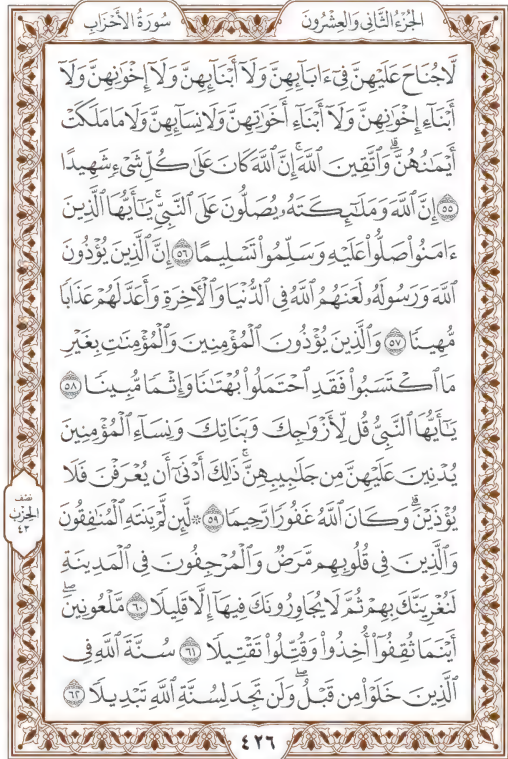 الجُزْءُ الثَّانِي وَالعِشْرُونَ
سُورَةُ الأَحْزَابِ
لَّا جُنَاحَ عَلَيْهِنَّ فِىٓ ءَابَآئِهِنَّ وَلَآ أَبْنَآئِهِنَّ وَلَآ إِخْوَٰنِهِنَّ وَلَآ
أَبْنَآءِ إِخْوَٰنِهِنَّ وَلَآ أَبْنَآءِ أَخَوَٰتِهِنَّ وَلَا نِسَآئِهِنَّ وَلَا مَا مَلَكَتْ
أَيْمَٰنُهُنَّۗ وَٱتَّقِينَ ٱللَّهَۚ إِنَّ ٱللَّهَ كَانَ عَلَىٰ كُلِّ شَىْءٍ شَهِيدًا
٥٥ إِنَّ ٱللَّهَ وَمَلَٰٓئِكَتَهُۥ يُصَلُّونَ عَلَى ٱلنَّبِىِّۚ يَٰٓأَيُّهَا ٱلَّذِينَ
ءَامَنُوا۟ صَلُّوا۟ عَلَيْهِ وَسَلِّمُوا۟ تَسْلِيمًا ٥٦ إِنَّ ٱلَّذِينَ يُؤْذُونَ
ٱللَّهَ وَرَسُولَهُۥ لَعَنَهُمُ ٱللَّهُ فِى ٱلدُّنْيَا وَٱلْءَاخِرَةِ وَأَعَدَّ لَهُمْ عَذَابًا
مُّهِينًا ٥٧ وَٱلَّذِينَ يُؤْذُونَ ٱلْمُؤْمِنِينَ وَٱلْمُؤْمِنَٰتِ بِغَيْرِ
مَا ٱكْتَسَبُوا۟ فَقَدِ ٱحْتَمَلُوا۟ بُهْتَٰنًا وَإِثْمًا مُّبِينًا ٥٨
يَٰٓأَيُّهَا ٱلنَّبِىُّ قُل لِّأَزْوَٰجِكَ وَبَنَاتِكَ وَنِسَآءِ ٱلْمُؤْمِنِينَ
يُدْنِينَ عَلَيْهِنَّ مِن جَلَٰبِيبِهِنَّۚ ذَٰلِكَ أَدْنَىٰٓ أَن يُعْرَفْنَ فَلَا
يُؤْذَيْنَۗ وَكَانَ ٱللَّهُ غَفُورًا رَّحِيمًا ٥٩ ۞ لَّئِن لَّمْ يَنتَهِ ٱلْمُنَٰفِقُونَ
وَٱلَّذِينَ فِى قُلُوبِهِم مَّرَضٌ وَٱلْمُرْجِفُونَ فِى ٱلْمَدِينَةِ
لَنُغْرِيَنَّكَ بِهِمْ ثُمَّ لَا يُجَاوِرُونَكَ فِيهَآ إِلَّا قَلِيلًا ٦٠ مَّلْعُونِينَۖ
أَيْنَمَا ثُقِفُوٓا۟ أُخِذُوا۟ وَقُتِّلُوا۟ تَقْتِيلًا ٦١ سُنَّةَ ٱللَّهِ فِى
ٱلَّذِينَ خَلَوْا۟ مِن قَبْلُۖ وَلَن تَجِدَ لِسُنَّةِ ٱللَّهِ تَبْدِيلًا ٦٢
نصف
الحزب
٤٣
٤٢٦